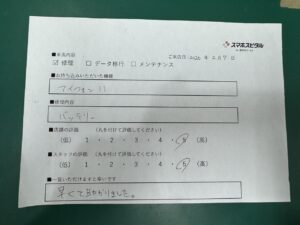 スマホスピタル
■来店内容
ご来店日 2026 年 2 月 7 日
☑ 修理 □ データ移行 □ メンテナンス
■お持ち込みいただいた機種
アイフォン 11
■修理内容
バッテリー
■店舗の評価 (丸を付けて評価してください)
(低) 1 . 2 . 3 . 4 . 5 (高)
■スタッフの評価 (丸を付けて評価してください)
(低) 1 . 2 . 3 . 4 . 5 (高)
■一言いただけますと幸いです
早くて助かりました。